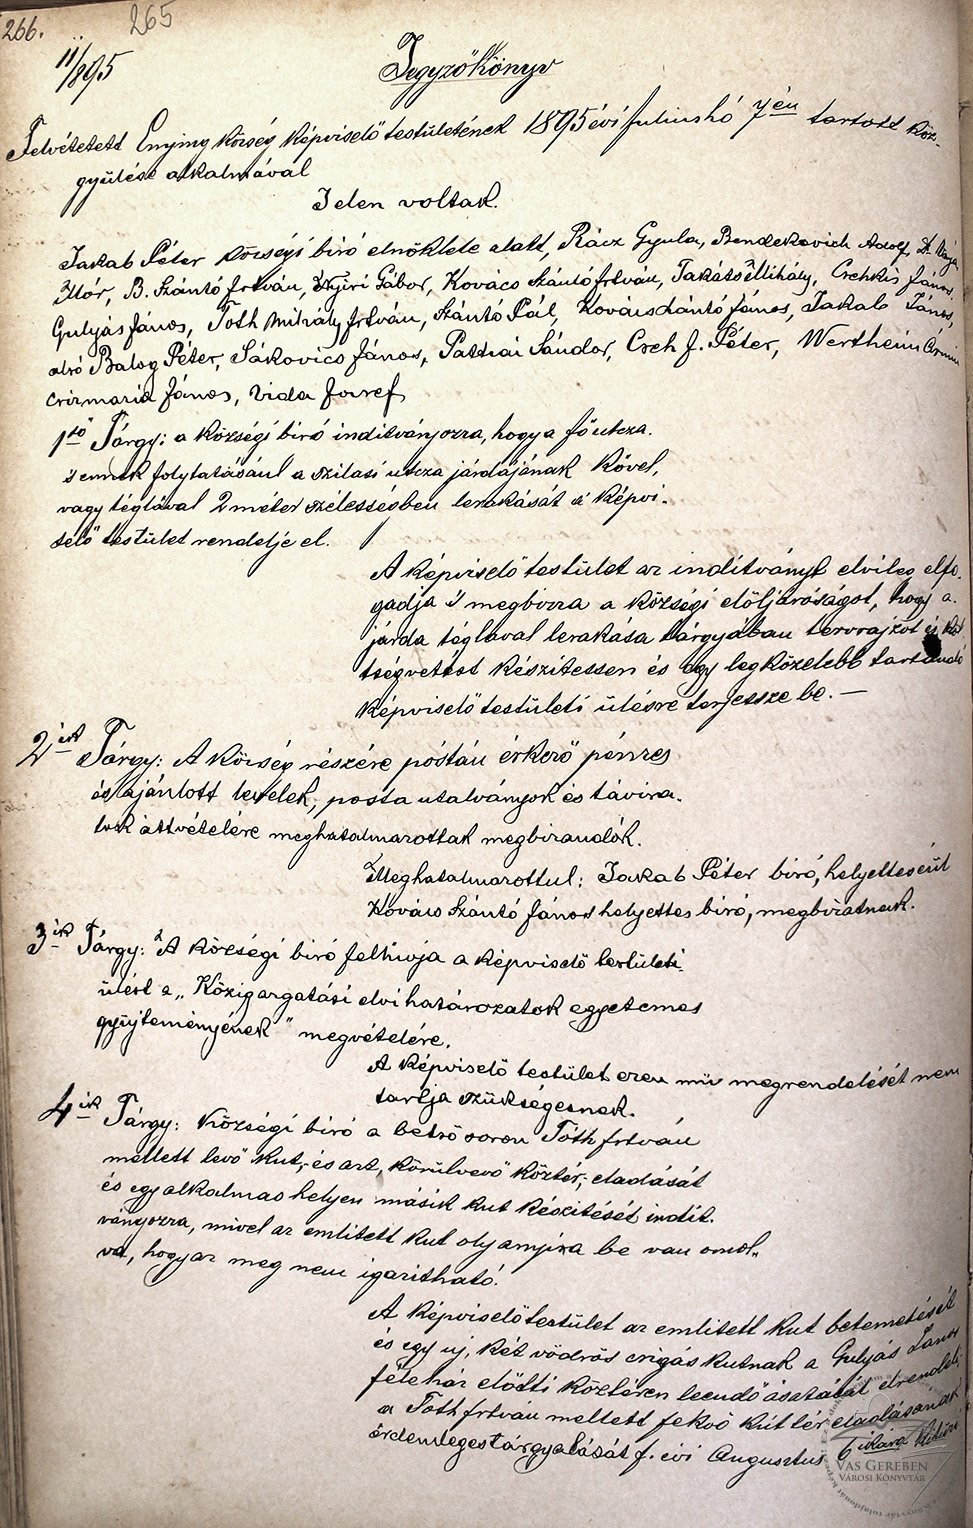 266.
265
11/895
Jegyzőkönyv
Felvétetett Enying község képviselő testületének 1895 évi Juliushó 7én tartott köz-
gyűlése alkalmával
Jelen voltak.
Jakab Péter községi biró elnöklete alatt, Rácz Gyula, Bendekovich Adolf, Dr.
Mór, B. Szántó István, Nyiri Gábor, Kovács Szántó István, Takáts Mihály, Csehkis János,
Gulyás János, Toth Mihály István, Szántó Pál, Kovács Szántó János, Jakab János,
alsó Balog Péter, Sákovics János, Patkai Sándor, Cseh J. Péter, Wertheim Ármin
Csizmazia János, Vida József
1ső Tárgy: a községi biró inditványozza, hogy a fő utcza.
s ennek folytatásául a szilasi utcza járdájának kővel,
vagy téglával 2 méter szélességben lerakását a képvi-
selő testület rendelje el.
A képviselő testület az indítványt elvileg elfo-
gadja s megbizza a községi előljáróságot, hogy a
járda téglával lerakása tárgyában tervrajzot és köl
tségvetést készitessen és egy legközelebb tartandó
képviselő testületi ülésre terjessze be. —
2ik Tárgy: A község részére póstán érkező pénzes
és ajánlott levelek, posta utalványok és távira-
tok átvételére meghatalmazottak megbizandók.
Meghatalmazottul: Jakab Péter biró, helyetteséül
Kovács Szántó János helyettes biró, megbizatnak.
3ik Tárgy: A községi biró felhivja a képviselő testületi
ülést a „Közigazgatási elvi határozatok egyetemes
gyűjteményének" megvételére.
A képviselő testület ezen mű megrendelését nem
tartja szükségesnek.
4ik Tárgy: Községi biró a belső soron Tóth István
mellett levő kut,- és azt, körülvevő köztér,- eladását
és egy alkalmas helyen másik kut készitését indit-
ványozza, mivel az emlitett kut oly annyira be van omol-
va, hogy az meg nem igazitható.
A képviselőtestület az emlitett kut betemetését
és egy új, két vödrös csigás kutnak a Gulyás János
féle ház előtti köztéren leendő ásatását elrendeli,
a Toth István mellett fekvő kút tér eladásának
érdemleges tárgyalását f. évi Augusztus 6 ikára
VAS GEREBEN
VÁROSI KÖNYVTÁR